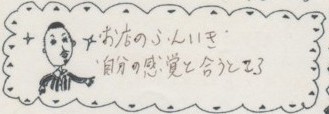 お店のふんいき
自分の感覚と合うところ